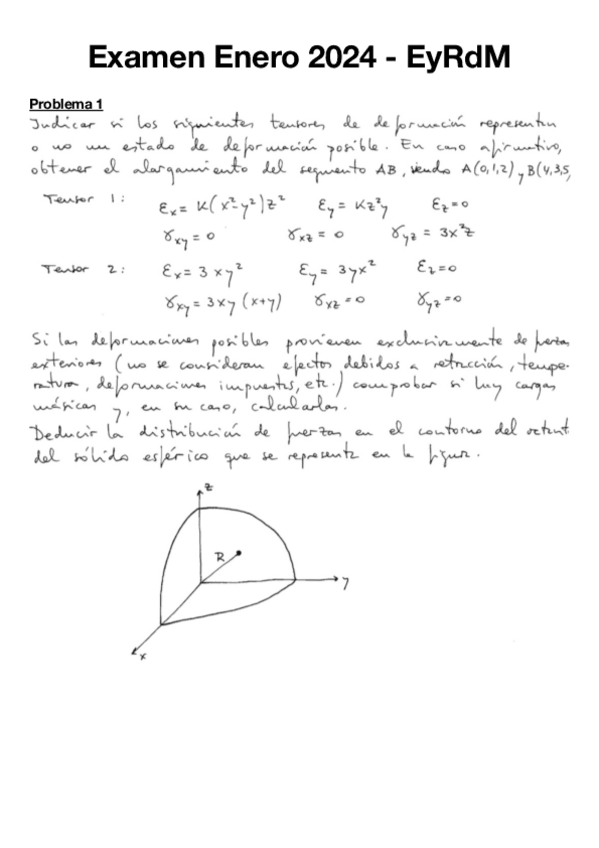 Examen Enero 2024 - EyRdM
Problema 1
Indicar si los siguientes tensores de deformación representan
o no un estado de deformación posible. En caso afirmativo,
obtener el alargamiento del segmento AB, siendo A(0,1,2) y B(4,3,5,
Tensor 1: εx = K(x²-y²)z² εy = Kz²y εz=0
γxy = 0 γxz = 0 γyz = 3x²z
Tensor 2: εx = 3xy² εy = 3yx² εz=0
γxy = 3xy(x+y) γxz = 0 γyz = 0
Si las deformaciones posibles provienen exclusivamente de fuerzas
exteriores (no se consideran efectos debidos a retracción, tempe-
ratura, deformaciones impuestas, etc.) comprobar si hay cargas
másicas y, en su caso, calcularlas.
Deducir la distribución de fuerzas en el contorno del octante
del sólido esférico que se representa en la figura.
z
R
y
x